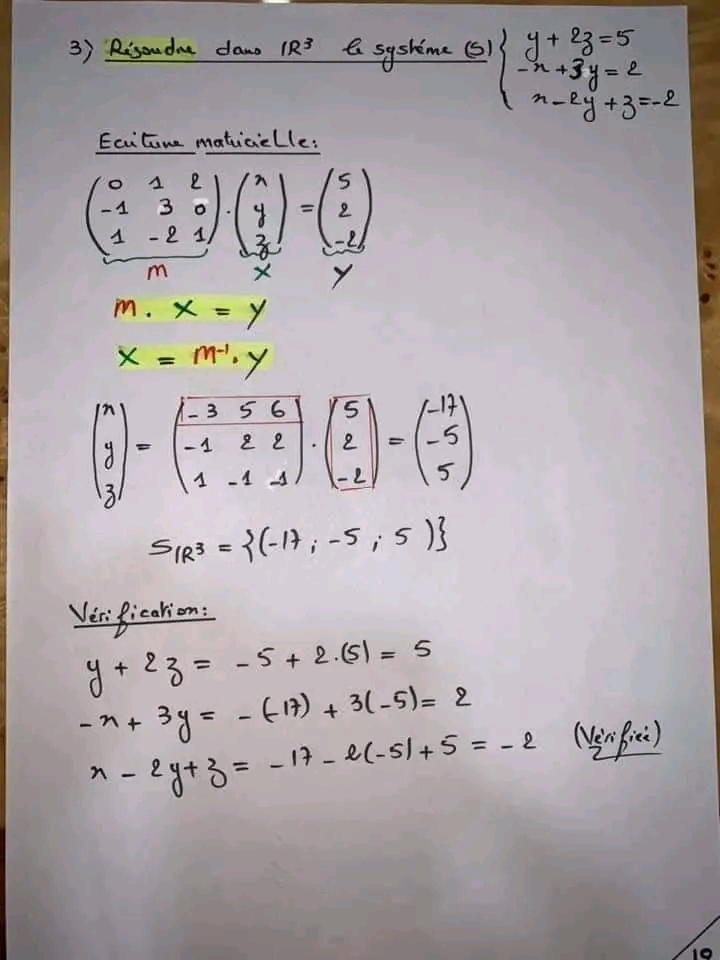 3) Résoudre dans IR³ le système (S) { y + 2z = 5
-x + 3y = 2
x - 2y + z = -2
Ecriture matricielle:
( 0 1 2 ) ( x ) ( 5 )
( -1 3 0 ) . ( y ) = ( 2 )
( 1 -2 1 ) ( z ) ( -2 )
m X Y
m . X = Y
X = m⁻¹. Y
( x ) ( -3 5 6 ) ( 5 ) ( -17 )
( y ) = ( -1 2 2 ) . ( 2 ) = ( -5 )
( z ) ( 1 -1 -1 ) ( -2 ) ( 5 )
S IR³ = {(-17 ; -5 ; 5 )}
Vérification:
y + 2z = -5 + 2.(5) = 5
-x + 3y = -(-17) + 3(-5) = 2
x - 2y + z = -17 - 2(-5) + 5 = -2 (Vérifiée)
19